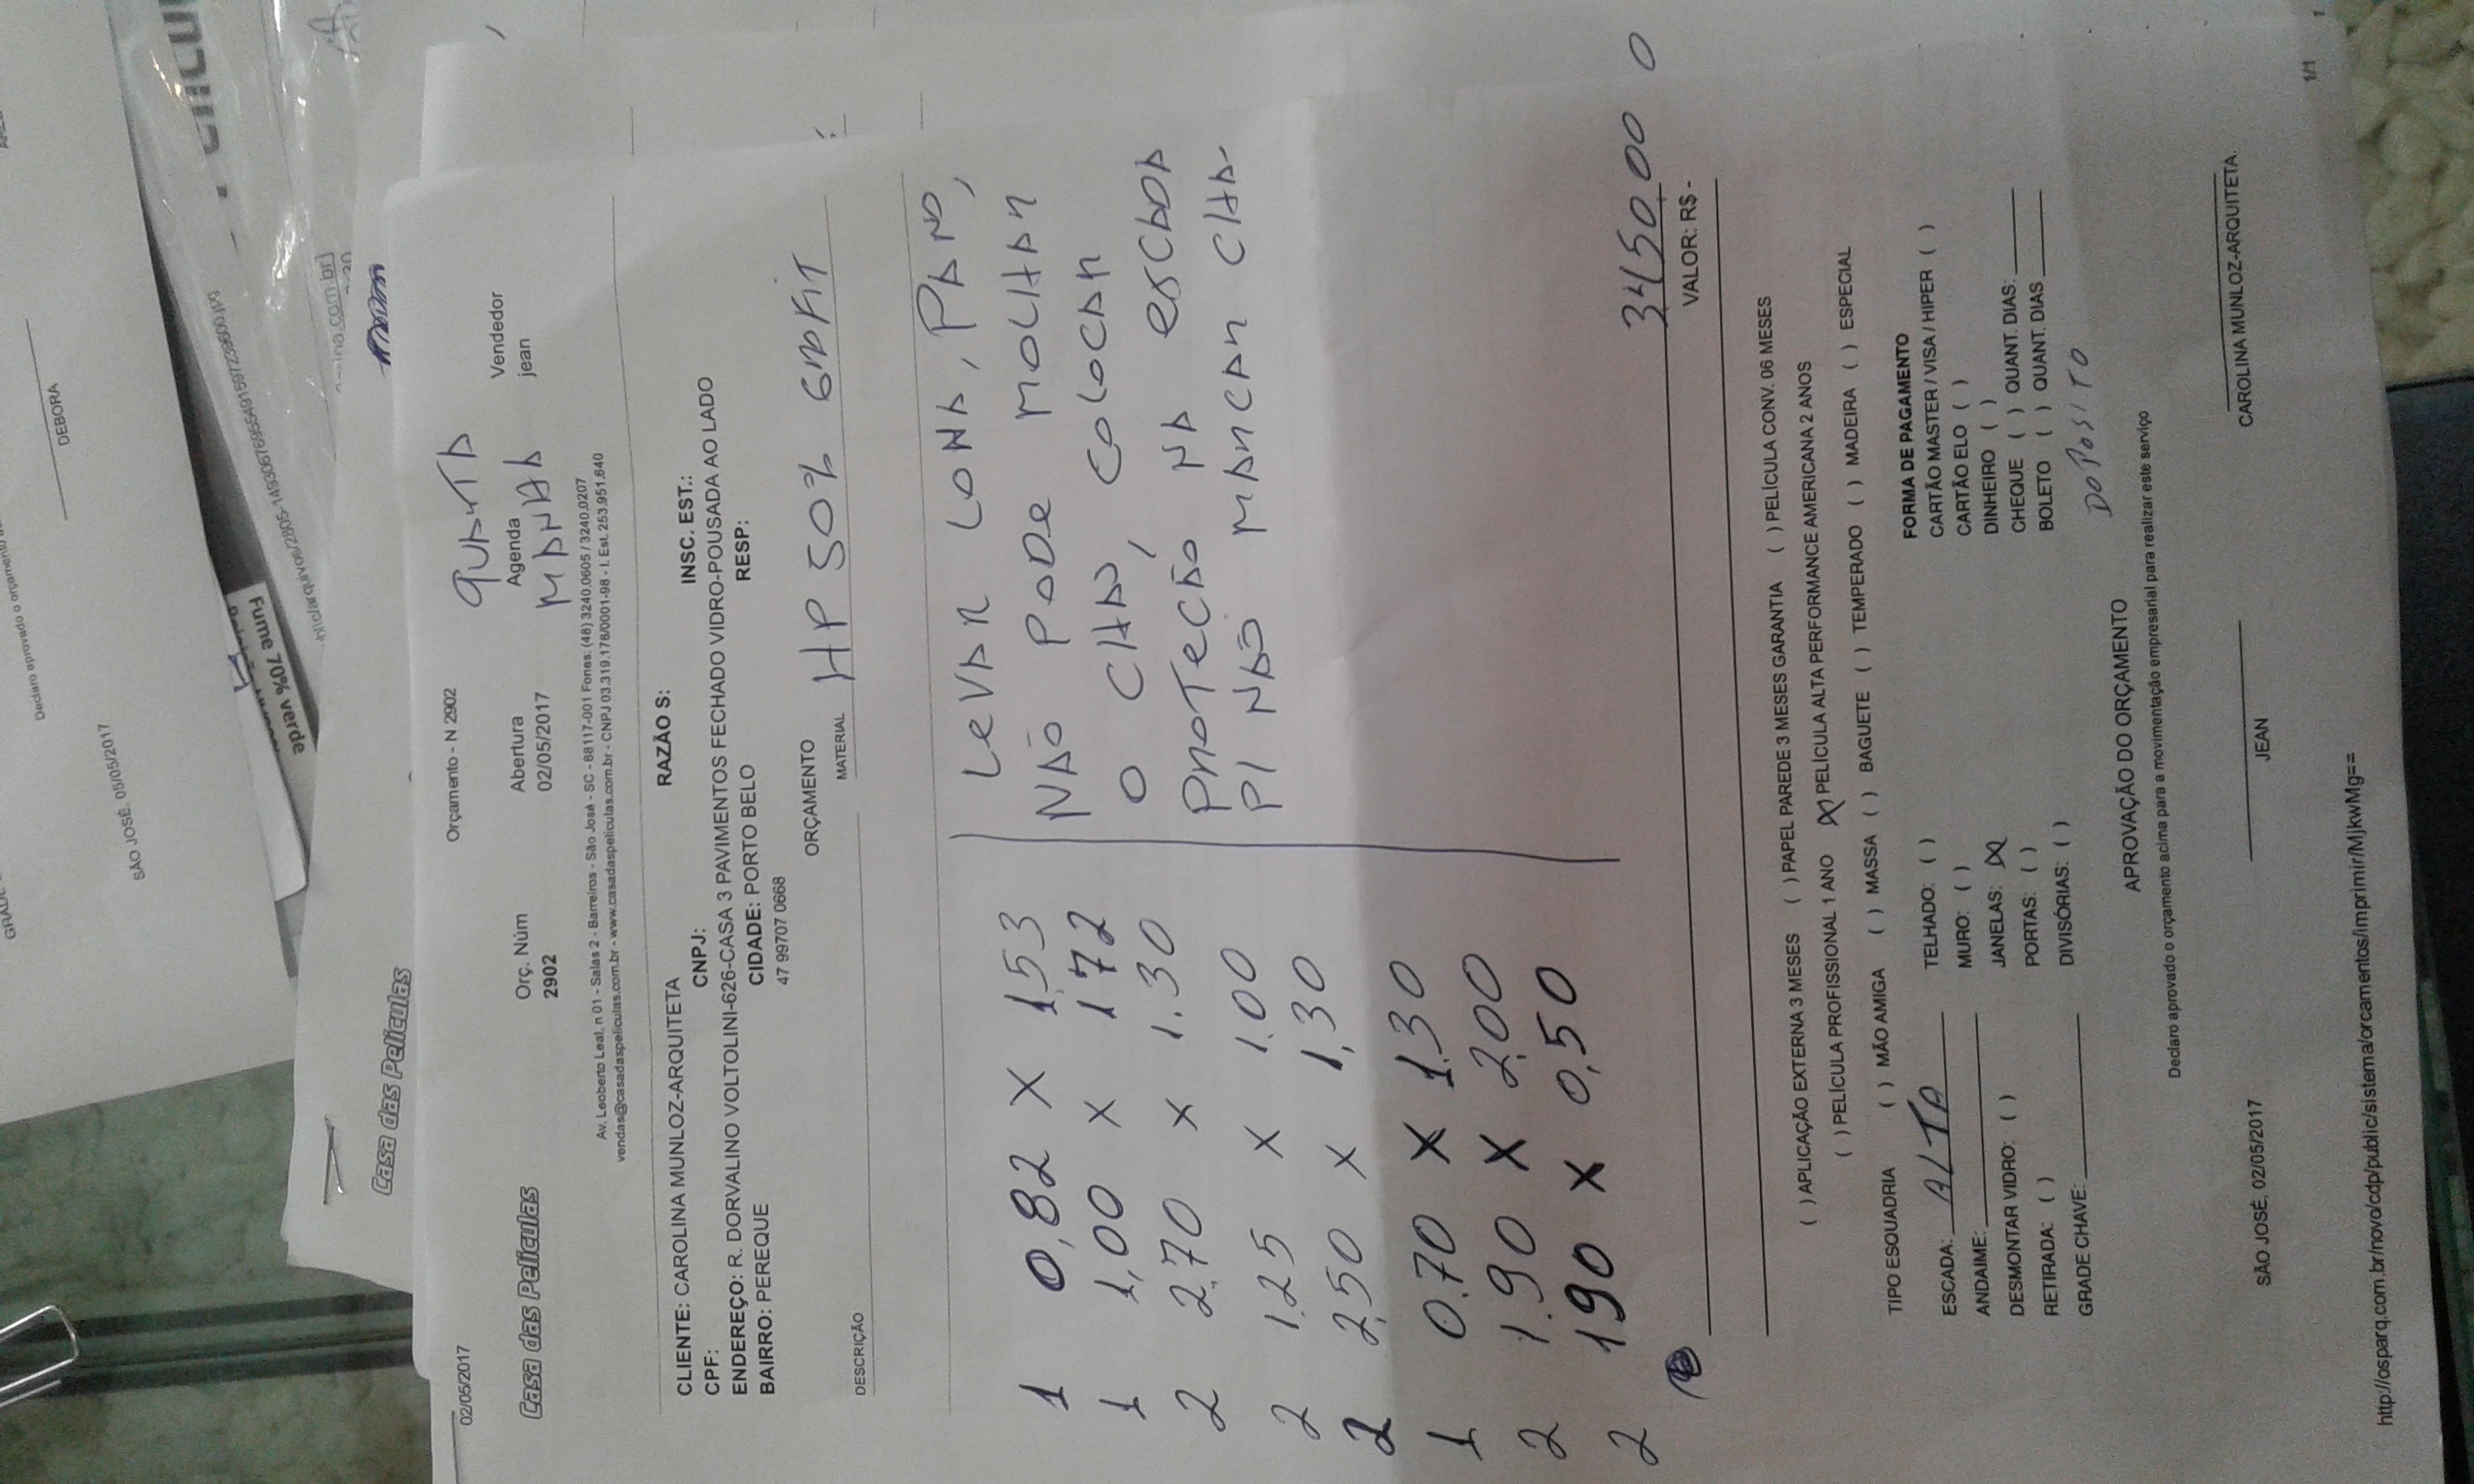 02/05/2017
Orçamento - N 2902
Casa das Películas
Orç. Núm
2902
Abertura
02/05/2017
QUARTA
Agenda
MANHÃ
Vendedor
jean
Av. Leoberto Leal, n 01 - Salas 2 - Barreiros - São José - SC - 88117-001 Fones: (48) 3240.0605 / 3240.0207
vendas@casadaspeliculas.com.br - www.casadaspeliculas.com.br - CNPJ 03.319.178/0001-98 - I. Est. 253.951.640
CLIENTE: CAROLINA MUNLOZ-ARQUITETA RAZÃO S:
CPF: CNPJ: INSC. EST.:
ENDEREÇO: R. DORVALINO VOLTOLINI-626-CASA 3 PAVIMENTOS FECHADO VIDRO-POUSADA AO LADO
BAIRRO: PEREQUE CIDADE: PORTO BELO RESP:
47 99707 0668
ORÇAMENTO
DESCRIÇÃO
MATERIAL HP 50% GRAFIT
1 0,82 X 1,53
1 1,00 X 1 72
2 2.70 X 1.30
2 1.25 X 1.00
2 2,50 X 1,30
1 0.70 X 1.30
2 1.90 X 2,00
2 1.90 X 0,50
LEVAR LONA, PANO,
NÃO PODE MOLHAR
O CHÃO, COLOCAR
PROTEÇÃO NA ESCADA
P/ NÃO MARCAR CHÃO
3450,00
VALOR: R$-
( ) APLICAÇÃO EXTERNA 3 MESES ( ) PAPEL PAREDE 3 MESES GARANTIA ( ) PELÍCULA CONV. 06 MESES
( ) PELÍCULA PROFISSIONAL 1 ANO (X) PELÍCULA ALTA PERFORMANCE AMERICANA 2 ANOS
TIPO ESQUADRIA ( ) MÃO AMIGA ( ) MASSA ( ) BAGUETE ( ) TEMPERADO ( ) MADEIRA ( ) ESPECIAL
ESCADA: ALTA
ANDAIME:
DESMONTAR VIDRO: ( )
RETIRADA: ( )
GRADE CHAVE:
TELHADO: ( )
MURO: ( )
JANELAS: (X)
PORTAS: ( )
DIVISÓRIAS: ( )
FORMA DE PAGAMENTO
CARTÃO MASTER / VISA / HIPER ( )
CARTÃO ELO ( )
DINHEIRO ( )
CHEQUE ( ) QUANT. DIAS:
BOLETO ( ) QUANT. DIAS
DOPOSITO
APROVAÇÃO DO ORÇAMENTO
Declaro aprovado o orçamento acima para a movimentação empresarial para realizar este serviço
SÃO JOSÉ, 02/05/2017
JEAN
CAROLINA MUNLOZ-ARQUITETA
http://osparq.com.br/novo/cdp/public/sistema/orcamentos/imprimir/MjkwMg==
1/1
Casa das Películas
SÃO JOSÉ, 05/05/2017
DEBORA
Declaro aprovado o orçamento
Fume 70% verde